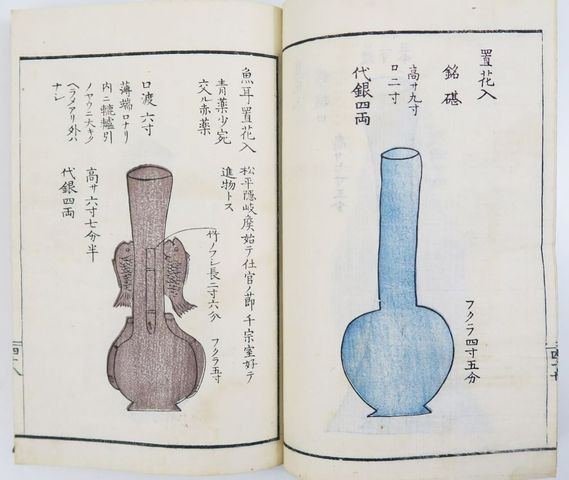 置花入
銘 碪
高サ九寸
口二寸
代銀四両
フクラ四寸五分
魚耳置花入
青薬少宛
六入ル赤薬
松平隠岐侯始テ仕官ノ節千宗室好テ
進物トス
口渡六寸
薄端口ナリ
内ニ轆轤引
ノヤウニ大キク
ヘラメアリ外ハ
ナシ
高サ六寸七分半
代銀四両
竹ノフシ長二寸六分
フクラ五寸